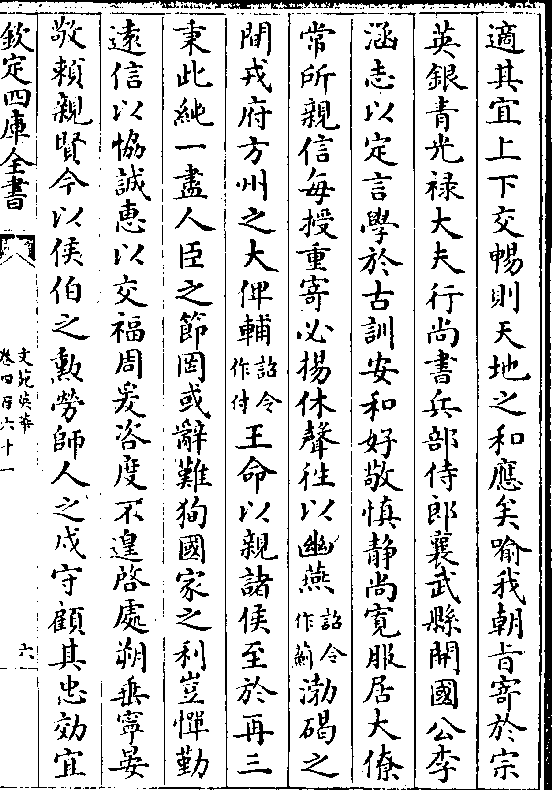 適其宜上下交暢則天地之和應矣喻我朝旨寄於宗
英銀青光祿大夫行尚書兵部侍郎襄武縣開國公李
涵志以定言學於古訓安和好敬慎静尚寛服居大僚
常所親信每授重寄必揚休聲徃以幽燕詔令作薊渤碣之
間戎府方州之大俾輔詔令作付王命以親諸侯至於再三
秉此純一盡人臣之節罔或辭難狥國家之利豈憚勤
遠信以恊誠惠以交福周爰咨度不遑啓處朔垂寧晏
敬賴親賢今以侯伯之勲勞師人之戍守顧其忠効宜
欽定四庫全書
文苑英華
卷四百六十一
六